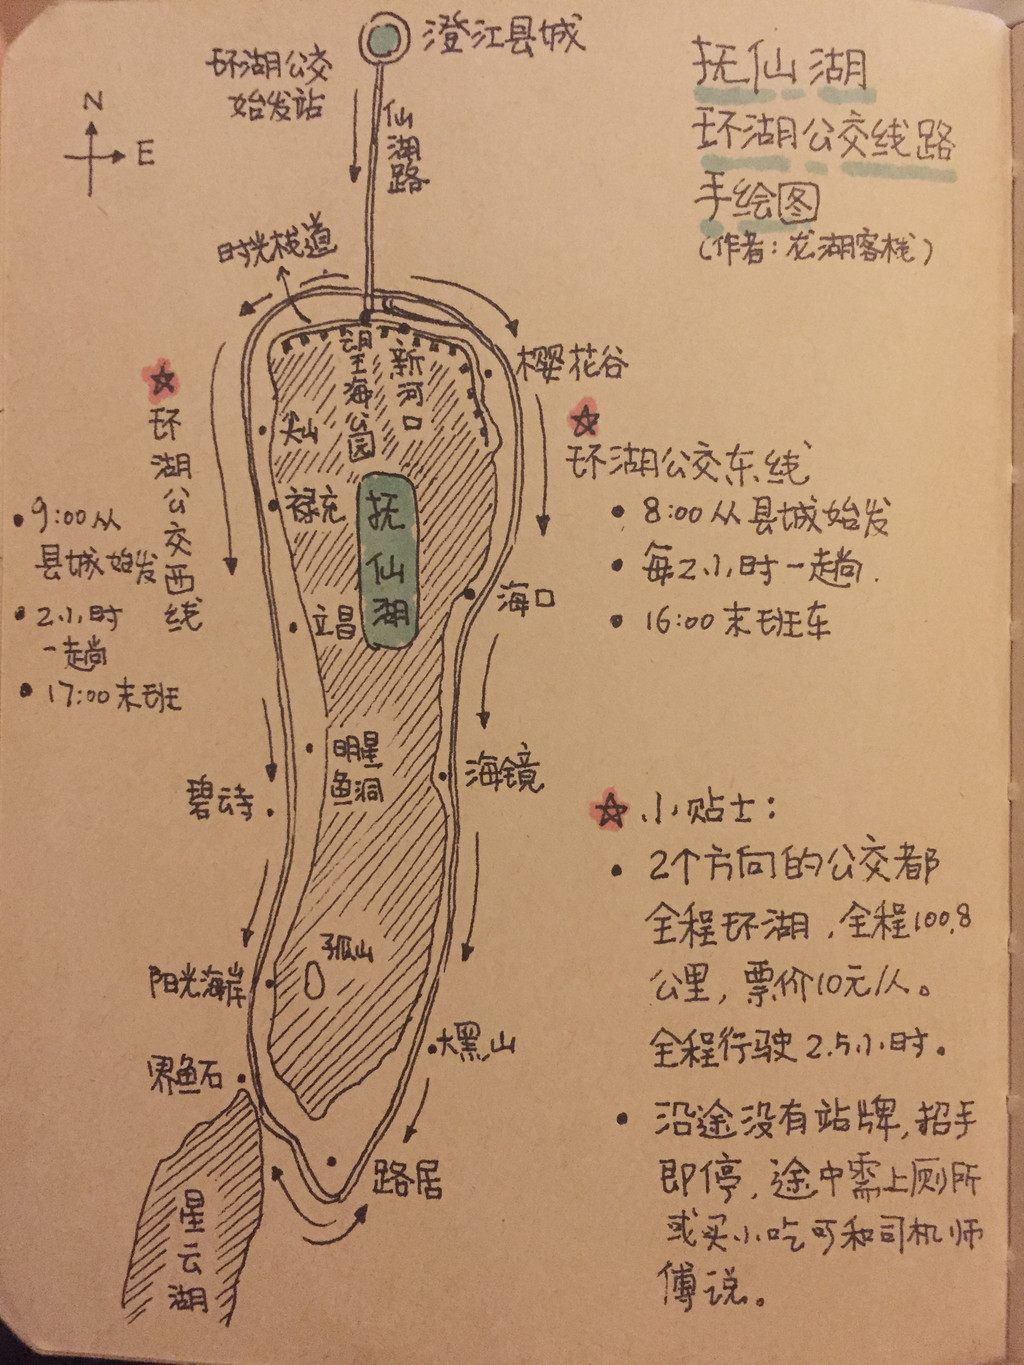 澄江县城
环湖公交
始发站
N
E
仙湖路
抚仙湖
环湖公交线路
手绘图
(作者:龙湖客栈)
时光栈道
望海公园
新河口
樱花谷
尖山
禄充
抚仙湖
立昌
明星
鱼洞
碧云寺
孤山
阳光海岸
界鱼石
星云湖
海口
海镜
大黑山
路居
环湖公交西线
9:00从
县城始发
2小时
一趟
17:00末班
环湖公交东线
8:00从县城始发
每2小时一趟.
16:00末班车
小贴士:
2个方向的公交都
全程环湖,全程100.8
公里,票价10元/人。
全程行驶2.5小时。
沿途没有站牌,招手
即停,途中需上厕所
或买小吃可和司机师
傅说。